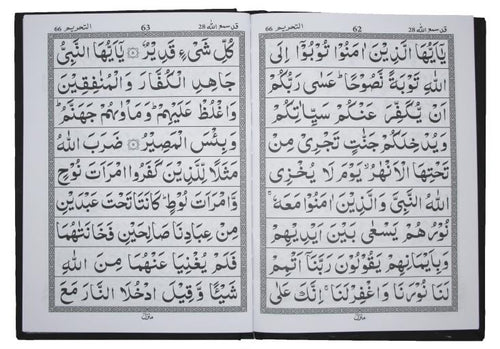 قد سمع الله 28
62
التحريم 66
يٰۤاَيُّهَا الَّذِيْنَ اٰمَنُوْا تُوْبُوْۤا اِلَى
اللّٰهِ تَوْبَةً نَّصُوْحًا ؕ عَسٰى رَبُّكُمْ
اَنْ يُّكَفِّرَ عَنْكُمْ سَيِّاٰتِكُمْ
وَيُدْخِلَكُمْ جَنّٰتٍ تَجْرِيْ مِنْ
تَحْتِهَا الْاَنْهٰرُ ۙ يَوْمَ لَا يُخْزِى
اللّٰهُ النَّبِىَّ وَالَّذِيْنَ اٰمَنُوْا مَعَهٗ ۚ
نُوْرُهُمْ يَسْعٰى بَيْنَ اَيْدِيْهِمْ
وَبِاَيْمَانِهِمْ يَقُوْلُوْنَ رَبَّنَاۤ اَتْمِمْ
لَنَا نُوْرَنَا وَاغْفِرْ لَنَا ۚ اِنَّكَ عَلٰى
منزل
قد سمع الله 28
63
التحريم 66
كُلِّ شَىْءٍ قَدِيْرٌ ۝ يٰۤاَيُّهَا النَّبِىُّ
جَاهِدِ الْكُفَّارَ وَالْمُنٰفِقِيْنَ
وَاغْلُظْ عَلَيْهِمْ ؕ وَمَاْوٰىهُمْ جَهَنَّمُ ؕ
وَبِئْسَ الْمَصِيْرُ ۝ ضَرَبَ اللّٰهُ
مَثَلًا لِّلَّذِيْنَ كَفَرُوا امْرَاَتَ نُوْحٍ
وَّامْرَاَتَ لُوْطٍ ؕ كَانَتَا تَحْتَ عَبْدَيْنِ
مِنْ عِبَادِنَا صَالِحَيْنِ فَخَانَتٰهُمَا
فَلَمْ يُغْنِيَا عَنْهُمَا مِنَ اللّٰهِ
شَيْـًٔا وَّقِيْلَ ادْخُلَا النَّارَ مَعَ
منزل